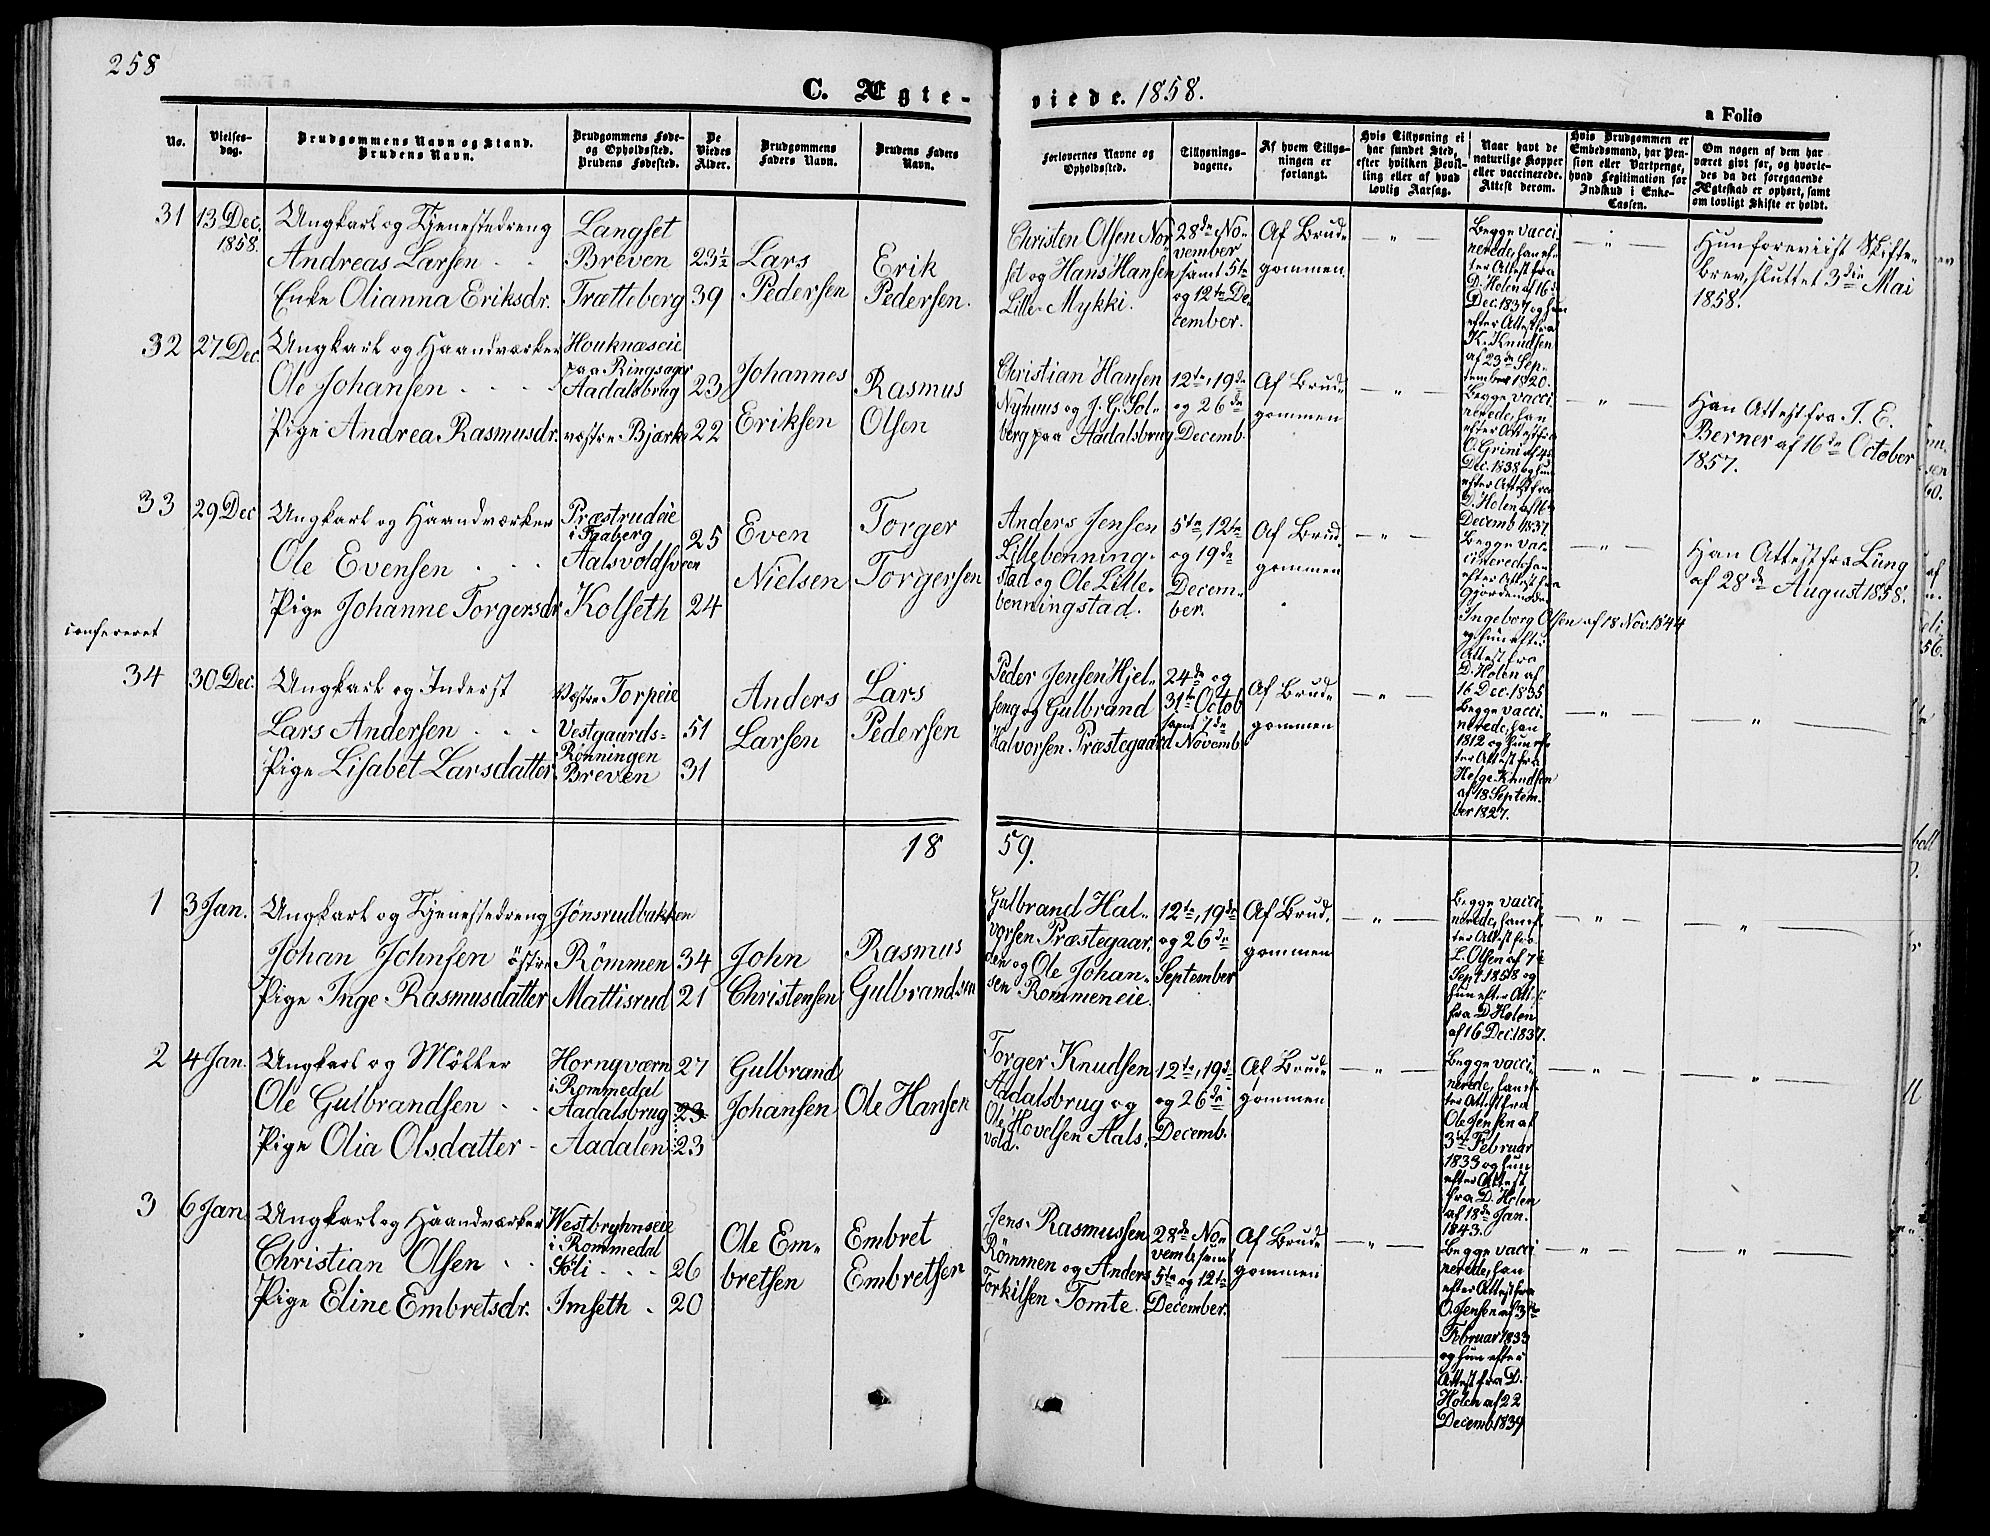 258
C. Ægteviede. 1858.
a Folio
No.
Vielsesdag.
Brudgommens Navn og Stand.
Brudens Navn.
Brudgommens Føde-
og Opholdssted.
Brudens Fødested.
De
Viedes
Alder.
Brudgommens
Faders Navn.
Brudens Faders
Navn.
Forlovernes Navne og
Opholdssted.
Tillysnings-
dagene.
Af hvem Tillys-
ningen er
forlangt.
Hvis Tillysning ei
har fundet Sted,
efter hvilken Bevil-
ling eller af hvad
lovlig Aarsag.
Naar havt de
naturlige Kopper
eller vaccinerede.
Attest derom.
Hvis Brudgommen er
Embedsmand, har Pen-
sion eller Vartpenge,
hvad Legitimation for
Indskud i Enke-
Cassen.
Om nogen af dem har
været givt før, og hvorle-
des da det foregaaende
Ægteskab er ophørt, samt
om lovligt Skifte er holdt.
31
13 Dec.
1858.
Ungkarl og Tjenestedreng
Andreas Larsen
Enke Olianna Eriksdr.
Langset
Breven
Trætteberg
23½
39
Lars
Pedersen
Erik
Pedersen.
Christen Olsen Nor-
set og Hans Hansen
Lille-Mykki.
28de No-
vember
samt 5te
og 12te De-
cember.
Af Brud-
gommen
Begge vacci-
nerede, han ef-
ter Attest fra
D. Holen af 16
Dec. 1837 og hun
efter Attest fra
K. Knudsen
af 23de Sep-
tember 1820.
Hun foreviist Skifte-
brev, sluttet 3die Mai
1858.
32
27 Dec.
Ungkarl og Haandværker
Ole Johansen
Pige Andrea Rasmusdr.
Houknæseie
paa Ringsager
Aadalsbrug
vestre Bjørke
23
22
Johannes
Eriksen
Rasmus
Olsen
Christian Hansen
Nyhuus og J. G. Sol-
berg paa Aadalsbrug
12te, 19de
og 26de
Decemb.
Af Brud-
gommen
Begge vacci-
nerede, han
efter Attest fra
O. Grini af 4de
Dec. 1838 og hun
efter Attest fra
D. Holen af 16
Decemb 1837.
Han Attest fra J. E.
Berner af 16de October
1857.
33
29 Dec
Ungkarl og Haandværker
Ole Evensen
Pige Johanne Torgersdr
Præstrudeie
i Faaberg
Aalsvoldsveen
Kolseth
25
24
Even
Nielsen
Torger
Torgersen
Anders Jensen
Lillebenning-
stad og Ole Lille-
benningstad.
5te, 12te
og 19de
Decem-
ber.
Af Brud-
gommen
Begge vac-
cinerede, han
efter Attest fra
Gjordemoder
Ingeborg Olsen af 18 Nov. 1844
og hun efter
Attest fra
D. Holen af
16 Dec. 1835
Han Attest fra Lüng
af 28de August 1858.
confereret
34
30 Dec.
Ungkarl og Inderst
Lars Andersen
Pige Lisabet Larsdatter
Vestre Torpeie
Vestgaards-
Rønningen
Breven
51
31
Anders
Larsen
Lars
Pedersen
Peder Jensen Hjel-
seng og Gulbrand
Halvorsen Præstegaard
24de og
31te Octob
samt 7de
Novemb
Af Brud-
gommen
Begge vacci-
nerede, han
1812 og hun ef-
ter Attest fra
Helge Knudsen
af 18 Septem-
ber 1827.
1859.
1
3 Jan.
Ungkarl og Tjenestedreng
Johan Johnsen
Pige Inge Rasmusdatter
Jønsrudbakken
østre Römmen
Mattisrud
34
21
John
Christensen
Rasmus
Gulbrandsen
Gulbrand Hal-
vorsen Præstegaar-
den og Ole Johan-
sen Rommeneie.
12te, 19de
og 26de
September
Af Brud-
gommen
Begge vacci-
nerede, han ef-
ter Attest fra
L. Olsen af 7de
Sept. 1858 og
hun efter Att.
fra D Holen
af 16 Dec. 1837.
2
4 Jan.
Ungkarl og Møller
Ole Gulbrandsen
Pige Olia Olsdatter
Horngværn
i Rommedal
Aadalsbrug
Aadalen
27
23
23
Gulbrand
Johansen
Ole Hansen
Torger Knudsen
Aadalsbrug og
Ole Hovelsen Aals-
vold.
12te, 19de
og 26de
Decemb.
Af Brud-
gommen
Begge vacci-
nerede, han ef-
ter Attest fra
Ole Jensen af
3die Februar
1833 og hun
efter Attest
fra D. Holen
af 18de Jan.
1843.
3
6 Jan
Ungkarl og Haandværker
Christian Olsen
Pige Eline Embretsdr.
Westbryhnseie
i Rommedal
Söli
Imseth
26
20
Ole Em-
bretsen
Embret
Embretsen
Jens Rasmussen
Rönmen og Anders
Torkilsen Tomte.
28de No-
vemb samt
5te og 12te
December.
Af Brud-
gommen
Begge vacci
nerede, han
efter Attest fra
O. Jensen af 3die
Februar 1833
og hun efter
Attest fra D.
Holen af 22
Decemb 1839